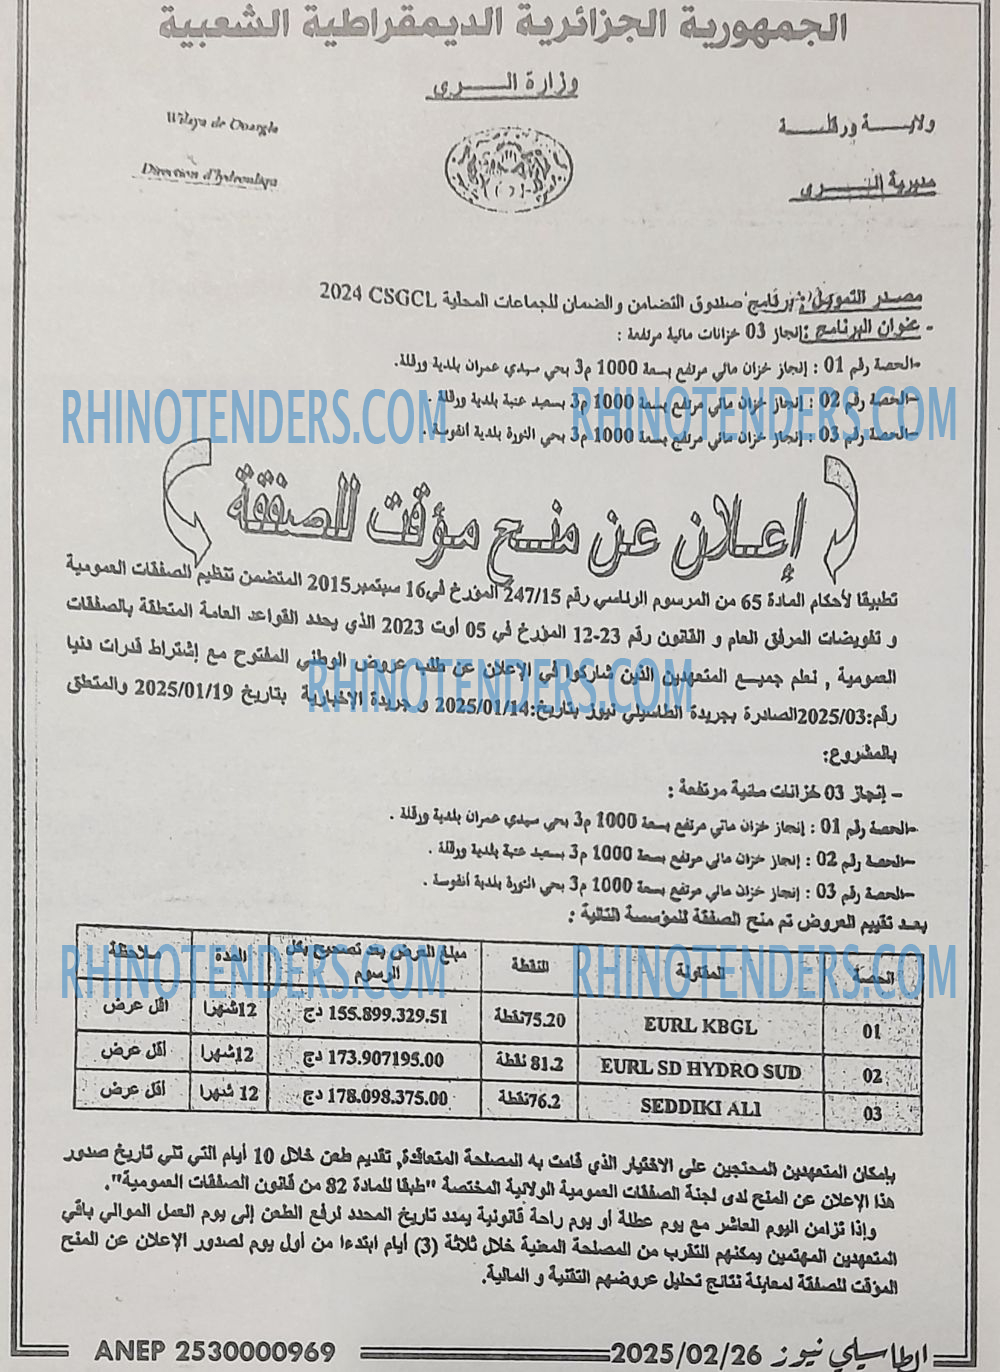 الجمهورية الجزائرية الديمقراطية الشعبية
وزارة الــــري
ولايــــة ورقلــــة
Wilaya de Ouargla
مديرية الــــري
Direction d'hydraulique
مصدر التمويل: برنامج صندوق التضامن والضمان للجماعات المحلية 2024 CSGCL
- عنوان البرنامج : إنجاز 03 خزانات مائية مرتفعة :
-الحصة رقم 01 : إنجاز خزان مائي مرتفع بسعة 1000 م3 بحي سيدي عمران بلدية ورقلة.
-الحصة رقم 02 : إنجاز خزان مائي مرتفع بسعة 1000 م3 بسعيد عتبة بلدية ورقلة .
-الحصة رقم 03 : إنجاز خزان مائي مرتفع بسعة 1000 م3 بحي الثورة بلدية أنقوسة .
RHINOTENDERS.COM RHINOTENDERS.COM
إعــلان عن منــح مؤقت للصفقة
تطبيقا لأحكام المادة 65 من المرسوم الرئاسي رقم 247/15 المؤرخ في16 سبتمبر2015 المتضمن تنظيم الصفقات العمومية
و تفويضات المرفق العام و القانون رقم 23-12 المؤرخ في 05 أوت 2023 الذي يحدد القواعد العامة المتعلقة بالصفقات
العمومية , نعلم جميــع المتعهدين الذين شاركوا في الإعلان عن طلب عروض الوطني المفتوح مع إشتراط قدرات دنيا
RHINOTENDERS.COM
رقم:2025/03الصادرة بجريدة الطاسيلي نيوز بتاريخ:2025/01/14 و جريدة الإخبارية بتاريخ 2025/01/19 والمتعلق
بالمشروع:
- إنجاز 03 خزانات مائية مرتفعة :
-الحصة رقم 01 : إنجاز خزان مائي مرتفع بسعة 1000 م3 بحي سيدي عمران بلدية ورقلة .
-الحصة رقم 02 : إنجاز خزان مائي مرتفع بسعة 1000 م3 بسعيد عتبة بلدية ورقلة .
-الحصة رقم 03 : إنجاز خزان مائي مرتفع بسعة 1000 م3 بحي الثورة بلدية أنقوسة .
بعد تقييم العروض تم منح الصفقة للمؤسسة التالية :
الحصة المقاولة النقطة مبلغ العرض بعد تصحيح بكل الرسوم المدة ملاحظة
RHINOTENDERS.COM RHINOTENDERS.COM
01 EURL KBGL 75.20نقطة 155.899.329.51 دج 12شهرا اقل عرض
02 EURL SD HYDRO SUD 81.2 نقطة 173.907195.00 دج 12شهرا أقل عرض
03 SEDDIKI ALI 76.2نقطة 178.098.375.00 دج 12 شهرا أقل عرض
بإمكان المتعهدين المحتجين على الاختيار الذي قامت به المصلحة المتعاقدة, تقديم طعن خلال 10 أيام التي تلي تاريخ صدور
هذا الإعلان عن المنح لدى لجنة الصفقات العمومية الولائية المختصة "طبقا للمادة 82 من قانون الصفقات العمومية".
وإذا تزامن اليوم العاشر مع يوم عطلة أو يوم راحة قانونية يمدد تاريخ المحدد لرفع الطعن إلى يوم العمل الموالي باقي
المتعهدين المهتمين يمكنهم التقرب من المصلحة المعنية خلال ثلاثة (3) أيام ابتدءا من أول يوم لصدور الإعلان عن المنح
المؤقت للصفقة لمعاينة نتائج تحليل عروضهم التقنية و المالية.
الطاسيلي نيوز 2025/02/26
ANEP 2530000969